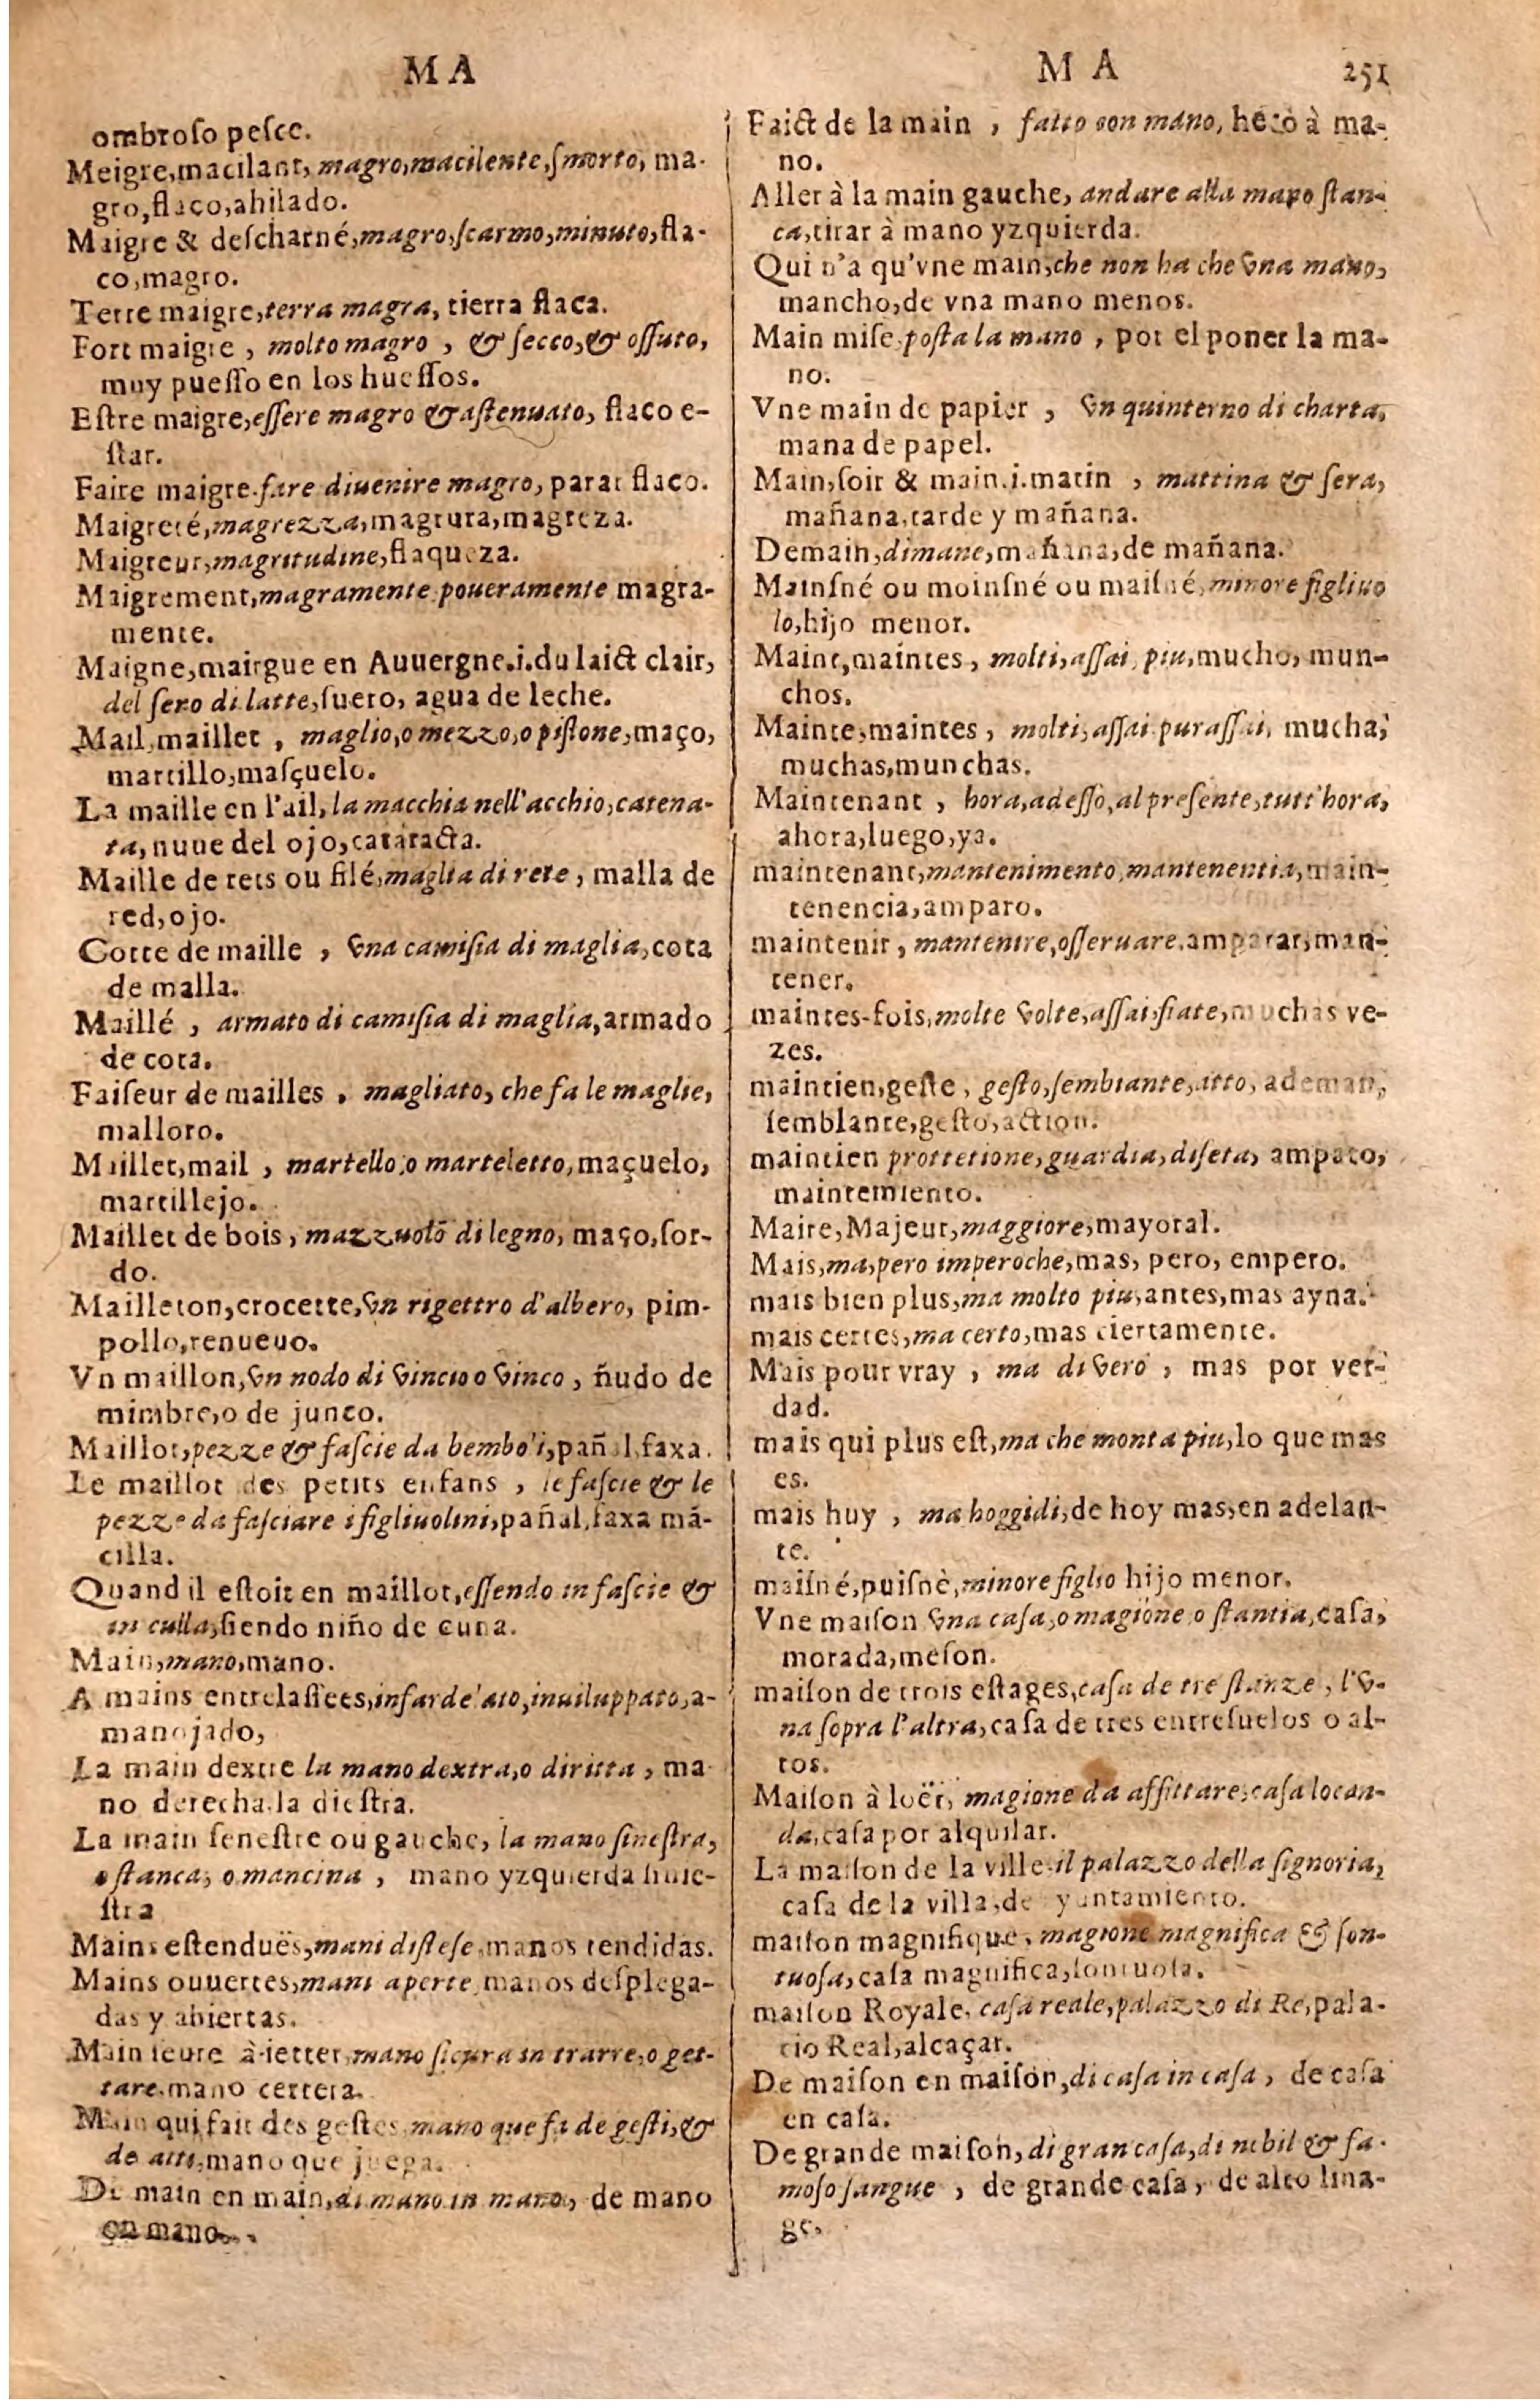 MA
ombroſo peſce.
Meigre, macilant, magro, macilente, ſmorto, ma-
gro, flaco, ahilado.
Maigre & deſcharné, magro, ſcarmo, minuto, fla-
co, magro.
Terre maigre, terra magra, tierra flaca.
Fort maigre , molto magro , & ſecco, & oſſuto,
muy pueſſo en los hueſſos.
Eſtre maigre, eſſere magro & aſtenuato, flaco e-
ſtar.
Faire maigre. fare diuenire magro, parar flaco.
Maigreté, magrezza, magrura, magreza.
Maigreur, magritudine, flaqueza.
Maigrement, magramente poueramente magra-
mente.
Maigne, mairgue en Auuergne.i.du laict clair,
del ſero di latte, ſuero, agua de leche.
Mail, maillet , maglio, o mezzo, o piſtone, maço,
martillo, maſçuelo.
La maille en l'ail, la macchia nell'acchio, catena-
ta, nuue del ojo, cataracta.
Maille de rets ou filé, maglia di rete , malla de
red, ojo.
Cotte de maille , vna camiſia di maglia, cota
de malla.
Maillé , armato di camiſia di maglia, armado
de cota.
Faiſeur de mailles , magliato, che fa le maglie,
malloro.
Maillet, mail , martello, o marteletto, maçuelo,
martillejo.
Maillet de bois , mazzuolo di legno, maço, ſor-
do.
Mailleton, crocette, vn rigettro d'albero, pim-
pollo, renueuo.
Vn maillon, vn nodo di vincio o vinco , ñudo de
mimbre, o de junco.
Maillot, pezze & faſcie da bembo'i, pañal, faxa.
Le maillot des petits enfans , le faſcie & le
pezze da faſciare i figliuolini, pañal, faxa mã-
cilla.
Quand il eſtoit en maillot, eſſendo in faſcie &
in culla, ſiendo niño de cuna.
Main, mano, mano.
A mains entrelaſſees, infarde'ato, inuiluppato, a-
manojado,
La main dextre la mano dextra, o diritta , ma
no derecha. la dieſtra.
La main ſeneſtre ou gauche, la mano ſineſtra,
o stanca, o mancina , mano yzquierda ſinie-
ſtra
Mains eſtenduës, mani diſteſe, manos tendidas.
Mains ouuertes, mani aperte, manos deſplega-
das y abiertas.
Main ſeure à ietter, mano ſicura in trarre, o get-
tare. mano certera.
Main qui fait des geſtes, mano que fa de geſti, &
de atti, mano que juega.
De main en main, di mano in mano, de mano
en mano.
MA 251
Faict de la main , fatto con mano, hecò à ma-
no.
Aller à la main gauche, andare alla mano ſtan-
ca, tirar à mano yzquierda.
Qui n'a qu'vne main, che non ha che vna mano,
mancho, de vna mano menos.
Main miſe, poſta la mano , por el poner la ma-
no.
Vne main de papier , vn quinterno di charta,
mana de papel.
Main, ſoir & main.i.matin , mattina & ſera,
mañana, tarde y mañana.
Demain, dimane, mañana, de mañana.
Mainſné ou moinſné ou maiſné, minore figliuo
lo, hijo menor.
Maint, maintes , molti, aſſai, piu, mucho, mun-
chos.
Mainte, maintes , molti, aſſai puraſſai, mucha,
muchas, munchas.
Maintenant , hora, adeſſo, al preſente, tutt'hora,
ahora, luego, ya.
maintenant, mantenimento, mantenentia, main-
tenencia, amparo.
maintenir , mantenire, oſſeruare. amparar, man-
tener.
maintes-fois, molte volte, aſſai, fiate, muchas ve-
zes.
maintien, geſte , geſto, ſembiante, atto, ademan,
ſemblante, geſto, action.
maintien prottetione, guardia, difeta, amparo,
maintemiento.
Maire, Majeur, maggiore, mayoral.
Mais, ma, pero imperoche, mas, pero, empero.
mais bien plus, ma molto piu, antes, mas ayna.
mais certes, ma certo, mas ciertamente.
Mais pour vray , ma di vero , mas por ver-
dad.
mais qui plus eſt, ma che monta piu, lo que mas
es.
mais huy , ma hoggidi, de hoy mas, en adelan-
te.
maiſné, puiſnè, minore figlio hijo menor.
Vne maiſon vna caſa, o magione o ſtantia, caſa,
morada, meſon.
maiſon de trois eſtages, caſa de tre ſtanze , l'v-
na ſopra l'altra, caſa de tres entreſuelos o al-
tos.
Maiſon à loër, magione da affittare, caſa locan-
da, caſa por alquilar.
La maiſon de la ville, il palazzo della ſignoria,
caſa de la villa, de yuntamiento.
maiſon magnifique, magione magnifica & ſon-
tuoſa, caſa magnifica, ſontuoſa.
maiſon Royale, caſa reale, palazzo di Re, pala-
cio Real, alcaçar.
De maiſon en maiſon, di caſa in caſa , de caſa
en caſa.
De grande maiſon, di gran caſa, di nobil & fa-
moſo ſangue , de grande caſa, de alto lina-
ge.